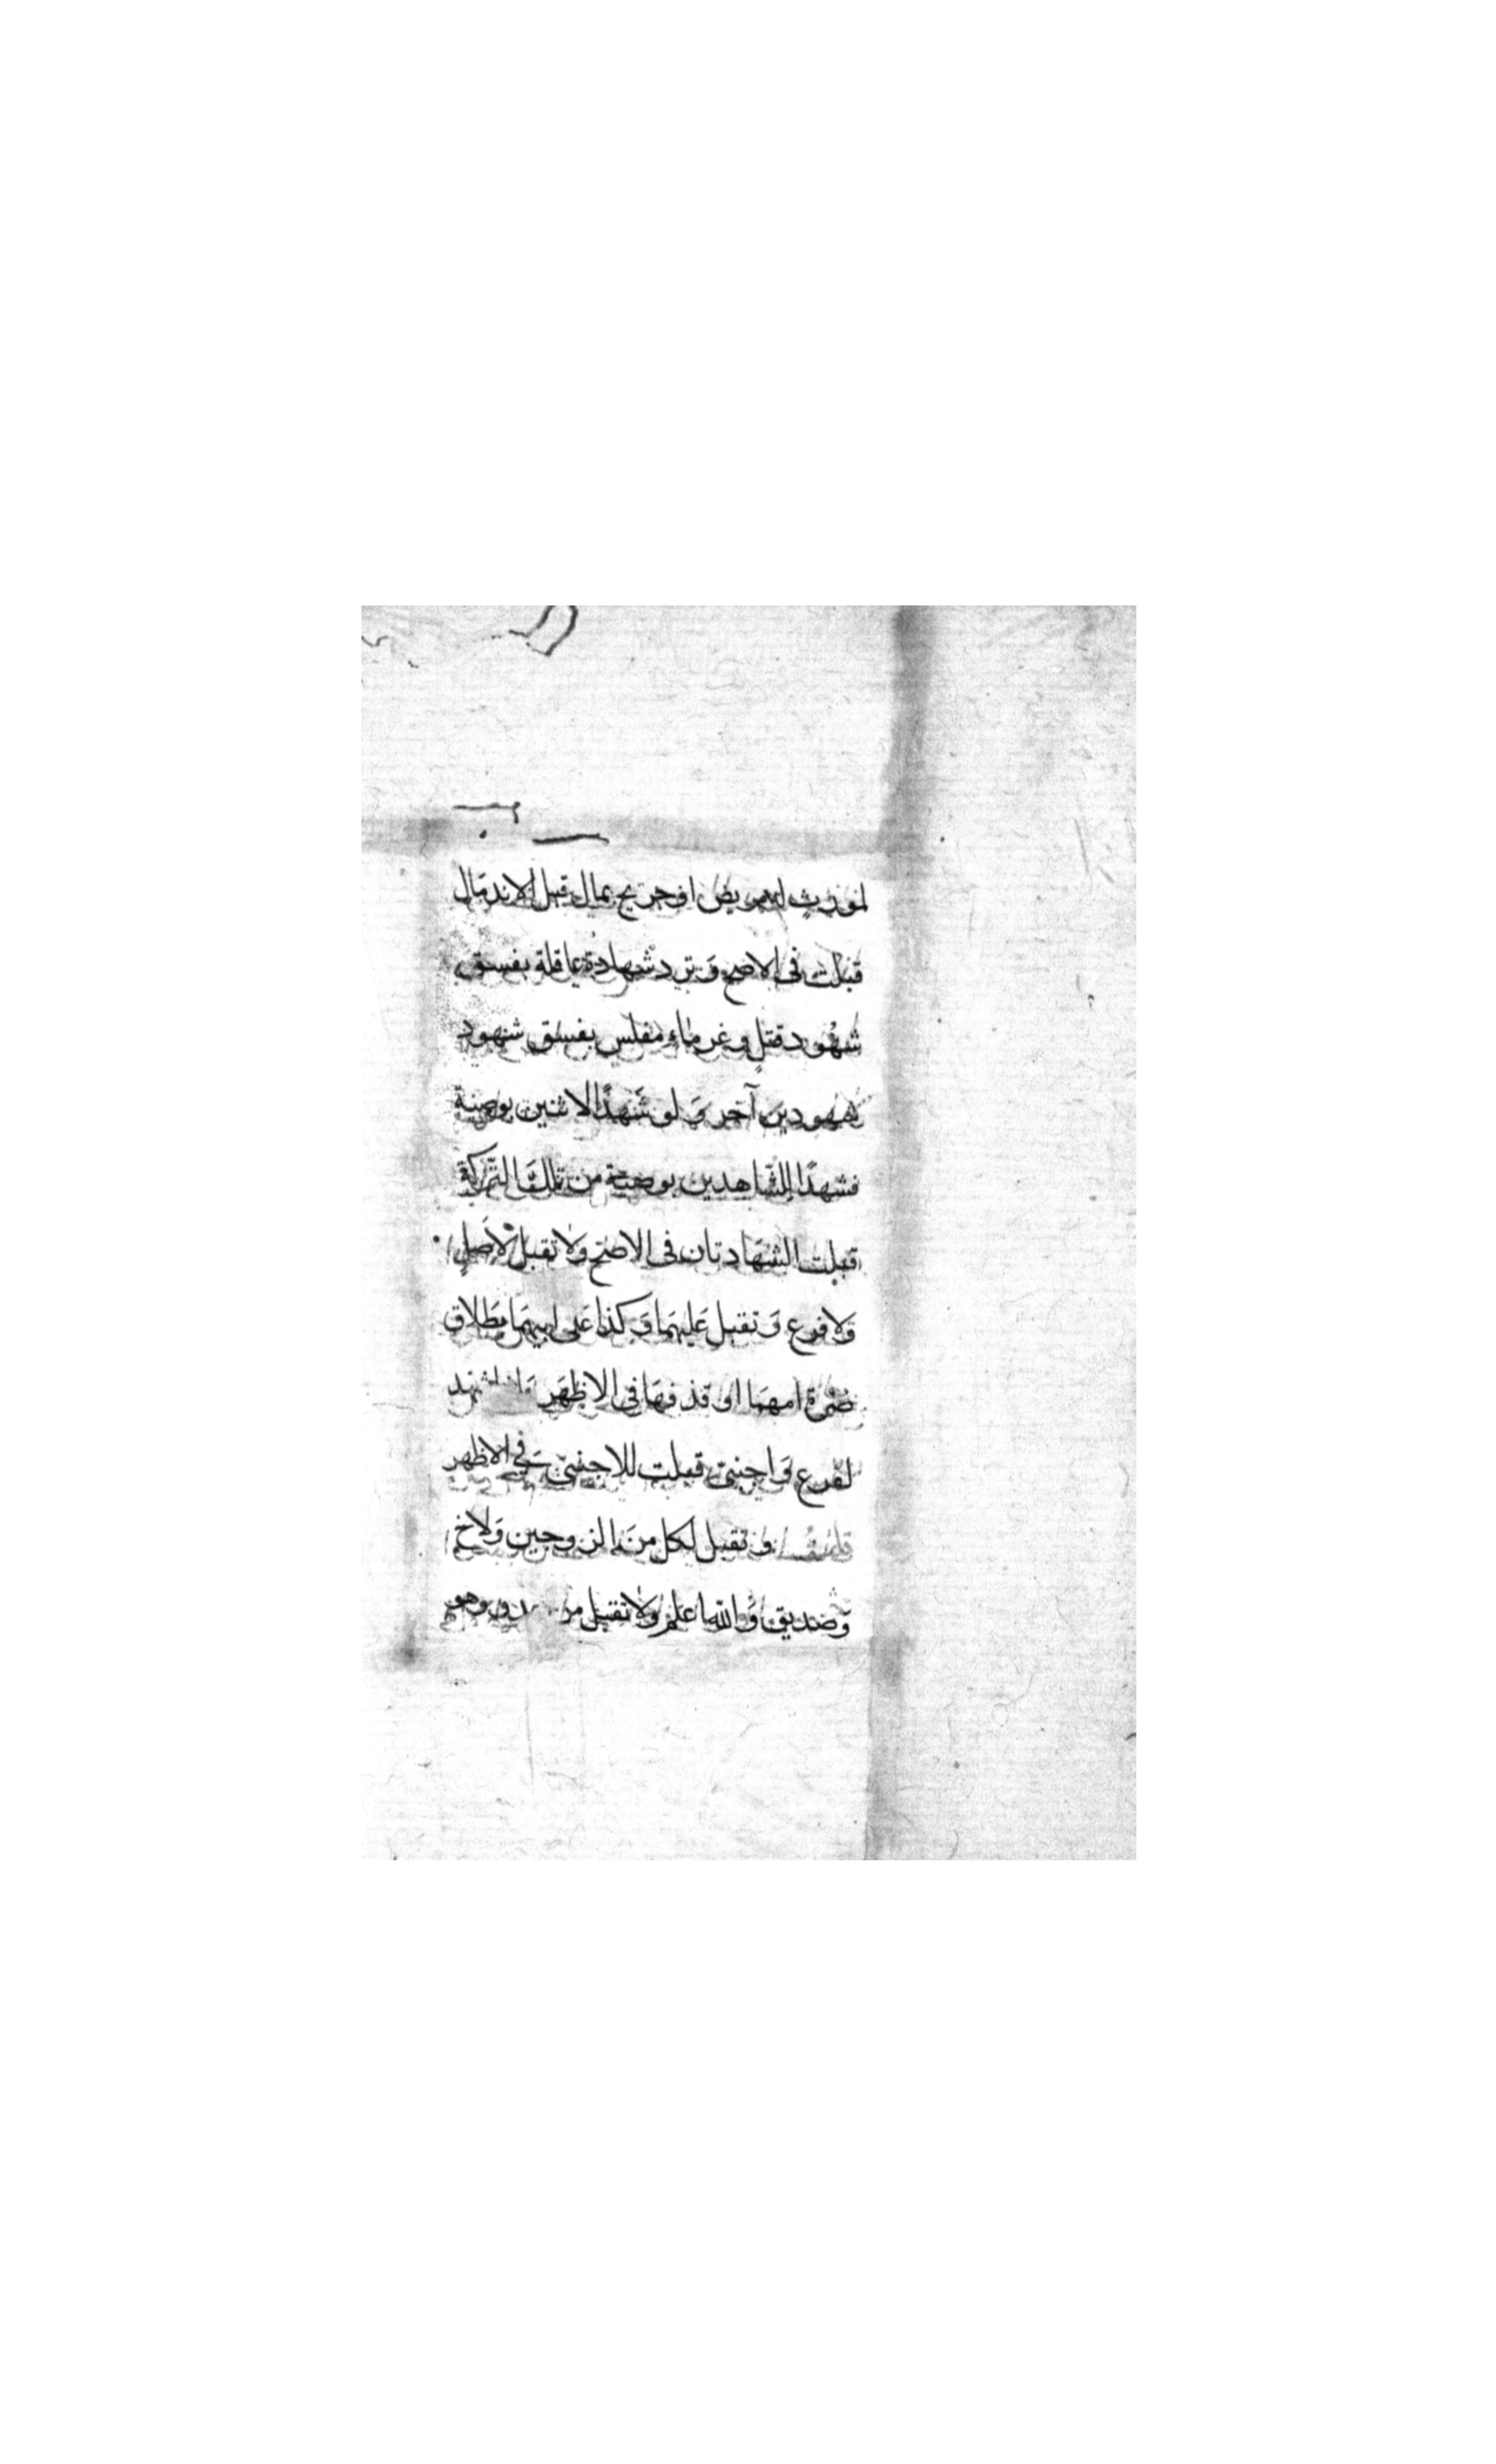 لمورث له مريض او جريح بمال قبل الاندمال
قبلت فى الاصح وترد شهادة عاقلة بفسق
شهود قتل وغرماء مفلس بفسق شهود
دين آخر ولو شهدا لاثنين بوصية
فشهدا للشاهدين بوصية من تلك التركة
قبلت الشهادتان فى الاصح ولا تقبل لاصل
ولا فرع وتقبل عليهما وكذا على ابيهما بطلاق
ضرة امهما او قذفها فى الاظهر واذا شهد
لفرع واجنبى قبلت للاجنبى فى الاظهر
قلت وتقبل لكل من الزوجين ولاخ
وصديق والله اعلم ولا تقبل من عدو وهو